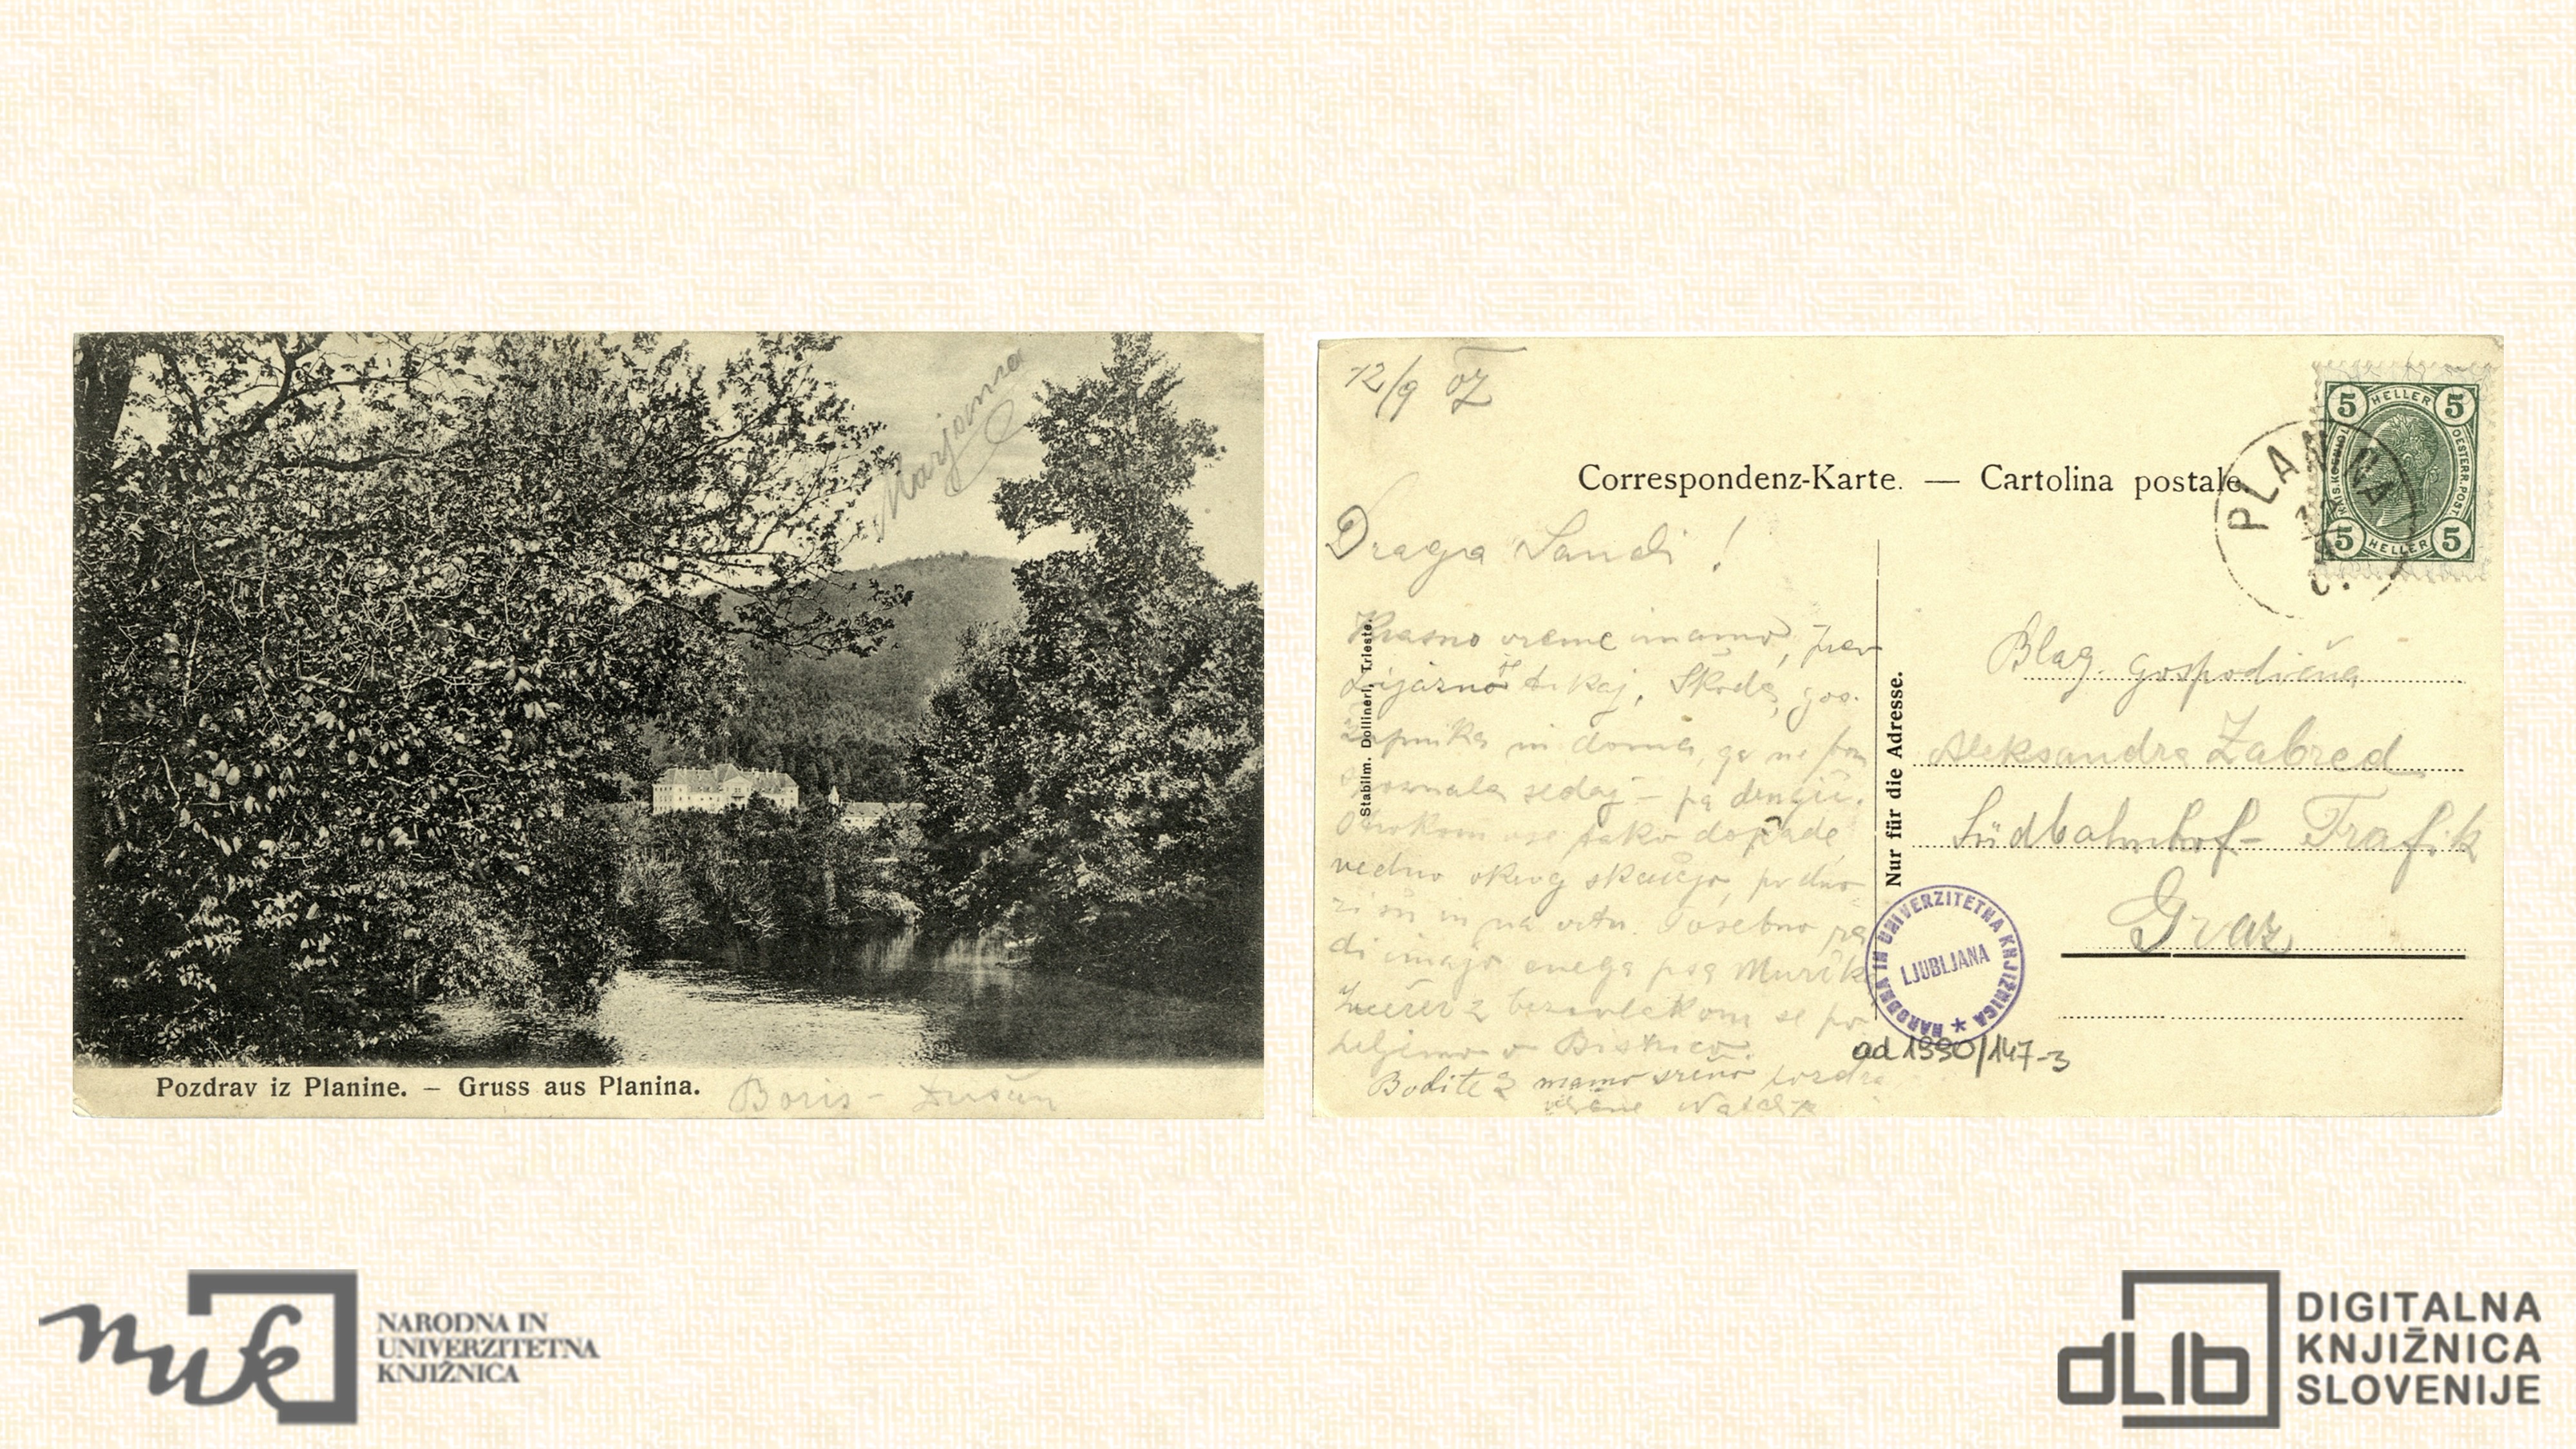 Marjanca
Pozdrav iz Planine. – Gruss aus Planina.
Boris – Dušan
12/9 07
Correspondenz-Karte. — Cartolina postale.
5 HELLER 5
5 HELLER 5
PLANINA
Draga Sandi!
Krasno vreme imamo, prav
prijazno je tukaj. Škoda, gos.
župnika in doma, ga ne bom
spoznala sedaj – pa drugič.
Otrokom vse tako dopade,
vedno okrog skačejo, po dvo
rišču in na vrtu. Posebno ra
di imajo enega psa Murčka
Zvečer z brzovlakom se po
peljemo v Bistrico.
Bodite z mamo srčno pozdra
vljene
Stabilm. Dollinerl, Trieste.
Nur für die Adresse.
Blag. gospodična
Aleksandra Zabred
Südbahnhof- Trafik
Graz
NARODNA IN UNIVERZITETNA KNJIŽNICA ★
LJUBLJANA
ad 1990/147-3
nuk
NARODNA IN
UNIVERZITETNA
KNJIŽNICA
dLib
DIGITALNA
KNJIŽNICA
SLOVENIJE